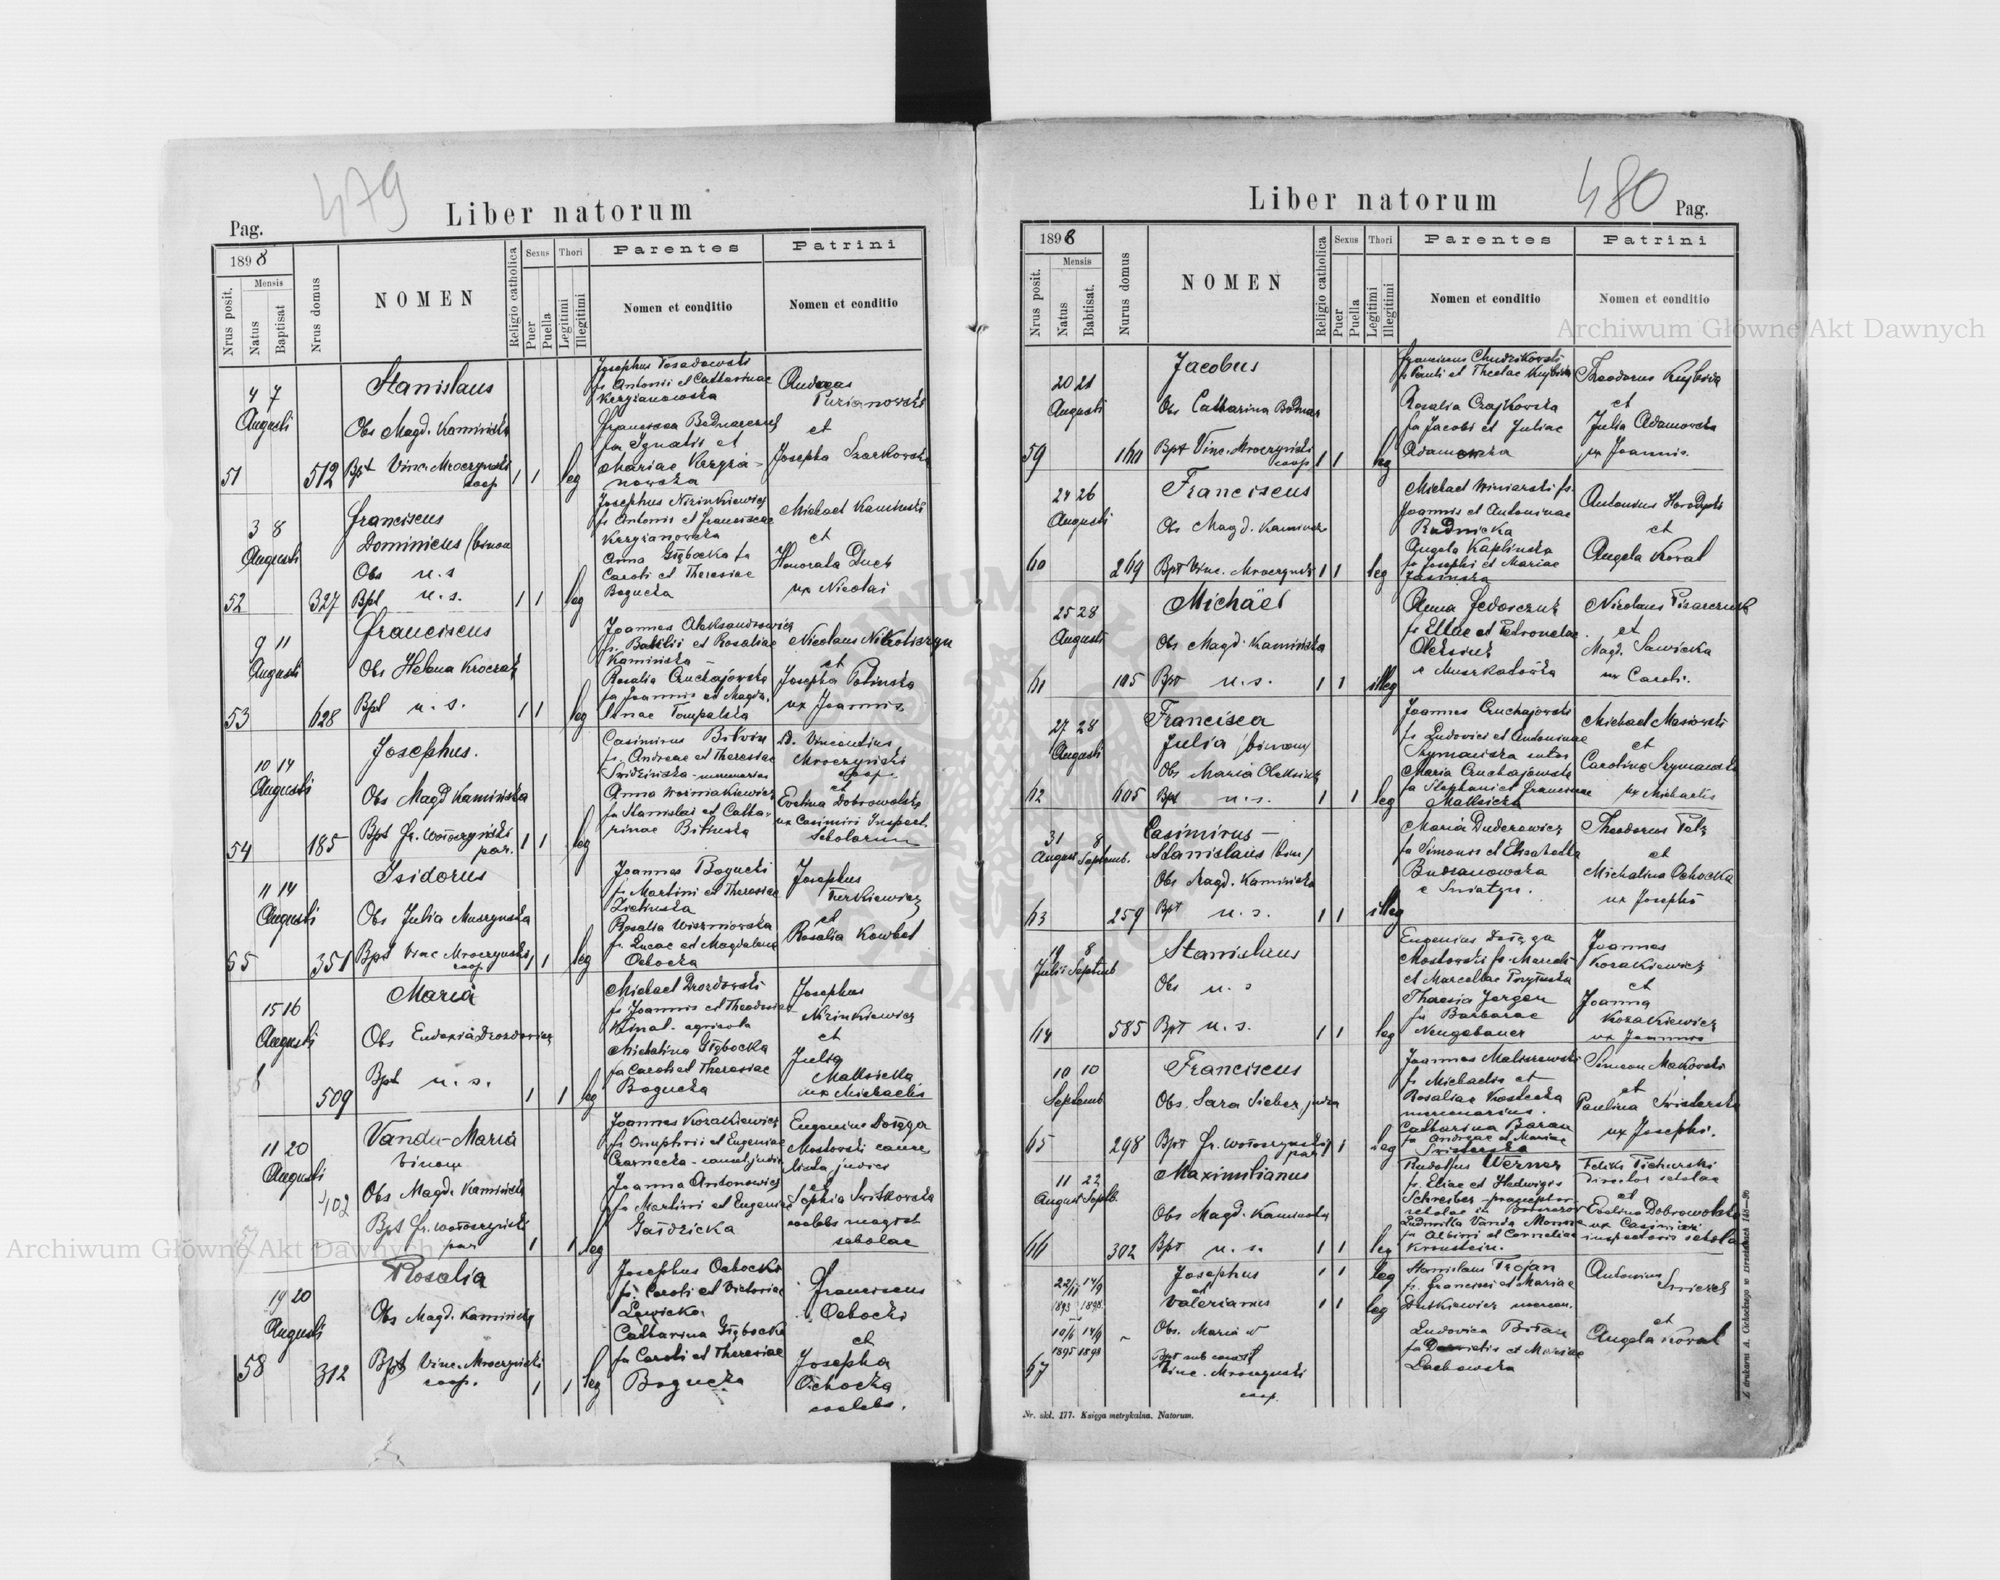 479
Liber natorum
Pag.
1898
Nrus posit.
Mensis
Natus
Baptisat
Nrus domus
NOMEN
Religio catholica
Sexus
Puer
Puella
Thori
Legitimi
Illegitimi
Parentes
Nomen et conditio
Patrini
Nomen et conditio
4 7
Augusti
51
512
Stanislaus
Obs Magd. Kamińska
Bpt Vinc. Mroczyński
coop
1 1 leg
Josephus
fs Antonii et Catharinae
Francisca
fa Ignatii et
Mariae
Andreas
et
Josepha Szarkowska
3 8
Augusti
52
327
Franciscus
Dominicus (binom
Obs u.s
Bpt u.s.
1 1 leg
Josephus Nizinkiewicz
fs Antonii et Franciscae
Anna Głębocka fa
Caroli et Theresiae
Bogucka
Michael Kamiński
et
Honorata Duch
ux Nicolai
9 11
Augusti
53
628
Franciscus
Obs Helena Kroczak
Bpt u.s.
1 1 leg
Joannes Aleksandrowicz
fs. Basilii et Rosaliae
Kamińska
Rosalia Cruchajowska
fa Joannis et Magda-
lenae Tompalska
Nicolaus
et
Josepha
ux Joannis
10 14
Augusti
54
185
Josephus.
Obs Magd Kamińska
Bpt fr. Wołoszyński
par.
1 1 leg
Casimirus
fs. Andreae et Theresiae
Anna Woźniakiewicz
fa Stanislai et Catha-
rinae Bilińska
D. Vincentius
Mroczyński
coop.
et
Evelina Dobrowolska
ux Casimiri Inspect.
Scholarum
11 14
Augusti
55
351
Isidorus
Obs Julia Muszyńska
Bpt Vinc Mroczyński
coop.
1 1 leg
Joannes Bogucki
fs Martini et Theresiae
Zielinska
Rosalia Wiszniowska
fa Lucae et Magdalena
Ochocka
Josephus
Turkiewicz
et
Rosalia Kowbel
15 16
Augusti
56
509
Maria
Obs Eudoxia Drozdowicz
Bpt u.s.
1 1 leg
Michael Drozdowski
fs Joannis et Theodosia
agricola
Michalina Głębocka
fa Caroli et Theresiae
Bogucka
Josephus
Nizinkiewicz
et
Julia
Malksicka
ux Michaelis
11 20
Augusti
57
402
Vanda-Maria
binom
Obs Magd. Kamińska
Bpt fr. Wołoszyński
par
1 1 leg
Joannes Korakiewicz
fs Onuphrii et Eugeniae
Czarnecka
Joanna Antonowicz
fa Martini et Eugeniae
Gaździcka
Eugenius Dołęga
Mostowski
et
Sophia Świtkowska
coelebs magist
scholae
19 20
Augusti
58
312
Rosalia
Obs Magd. Kamińska
Bpt Vinc. Mroczyński
coop.
1 1 leg
Josephus Ochocki
fs. Caroli et Victoriae
Lewicka
Catharina Głębocka
fa Caroli et Theresiae
Bogucka
Franciscus
Ochocki
et
Josepha
Ochocka
coelebs.
Liber natorum
480
Pag.
1898
Nrus posit.
Mensis
Natus
Babtisat.
Nurus domus
NOMEN
Religio catholica
Sexus
Puer
Puella
Thori
Legitimi
illegitimi
Parentes
Nomen et conditio
Patrini
Nomen et conditio
20 21
Augusti
59
160
Jacobus
Obs Catharina Bodnar
Bpt Vinc. Mroczyński
coop
1 1 leg
Franciscus Chudzikowski
fs Pauli et Theclae Kujbida
Rosalia Czajkowska
fa Jacobi et Juliae
Adamowska
Theodorus Kujbida
et
Julia Adamowska
ux Joannis.
24 26
Augusti
60
269
Franciscus
Obs Magd. Kamińska
Bpt Vinc. Mroczyński
1 1 leg
Michael Winiarski fs.
Joannis et Antoninae
Rudnicka
Angela Kaplinska
fa Josephi et Mariae
Jasinska
Antonius Horodyski
et
Angela Koval
25 28
Augusti
61
105
Michäel
Obs Magd. Kamińska
Bpt u.s.
1 1 illeg
Anna Fedorczuk
fa Eliae et Petronelae
Oleksiuk
e Muszkatówka
Nicolaus Pisarczuk
et
Magd. Sawicka
ux Caroli.
27 28
Augusti
62
605
Francisca
Julia (binom)
Obs Maria Oleksiuk
Bpt u.s.
1 1 leg
Joannes Cruchajowski
fs Ludovici et Antoninae
Szymańska
Maria Cruchajowska
fa Stephani et Franciscae
Malksicka
Michael Masiowski
et
Carolina Szymańska
ux Michaelis
31 8
August Septemb.
63
259
Casimirus –
Stanislaus (bin)
Obs Magd. Kamińska
Bpt u.s.
1 1 illeg
Maria Duderewicz
fa Simonis et Elisabetha
Budzanowska
e Sniatyn.
Theodorus Pelz
et
Michalina Ochocka
ux Josephi
19 8
Julii Septemb
64
585
Stanislaus
Obs u.s
Bpt u.s.
1 1 leg
Eugenius Dołęga
Mostowski fs. Marceli
et Marcellae
Theresia Jergen
fa Barbarae
Neugebauer
Joannes
Korakiewicz
et
Joanna
Korakiewicz
ux Joannis
10 10
Septemb
65
298
Franciscus
Obs. Sara Sieber judea
Bpt fr. Wołoszyński
par
1 1 leg
Joannes Maliszewski
fs Michaelis et
Rosaliae Kostecka
mercenarius.
Catharina Baran
fa Andreae et Mariae
Świsterska
Simeon Makowski
et
Paulina Świsterska
ux Josephi.
11 22
August Septb.
66
302
Maximilianus
Obs Magd. Kaminska
Bpt u.s.
1 1 leg
Rudolfus Werner
fs. Eliae et Hedwigis
Schreiber – praeceptor
scholae in
Ludmilla Vanda
fa Albini et Corneliae
Kronstein.
Feliks Pichurski
Director scholae
et
Evelina Dobrowolska
ux Casimiri
inspectoris schola
22/11 14/9
1893 1898
10/6 14/9
1895 1898
67
–
Josephus
et
Valerianus
Obs. Maria
Bpt sub cond
Vinc. Mroczyński
coop.
1 1 leg
1 1 leg
Stanislaus Trojan
fs. Francisci et Mariae
Dutkiewicz mercen.
Ludovica Bilan
fa Danielis et Mariae
Lachowska
Antonius
Smiczek
et
Angela Koval
Nr. skł. 177. Księga metrykalna. Natorum.
Z drukarni A. Cichockiego w
Archiwum Główne Akt Dawnych
Archiwum Główne Akt Dawnych